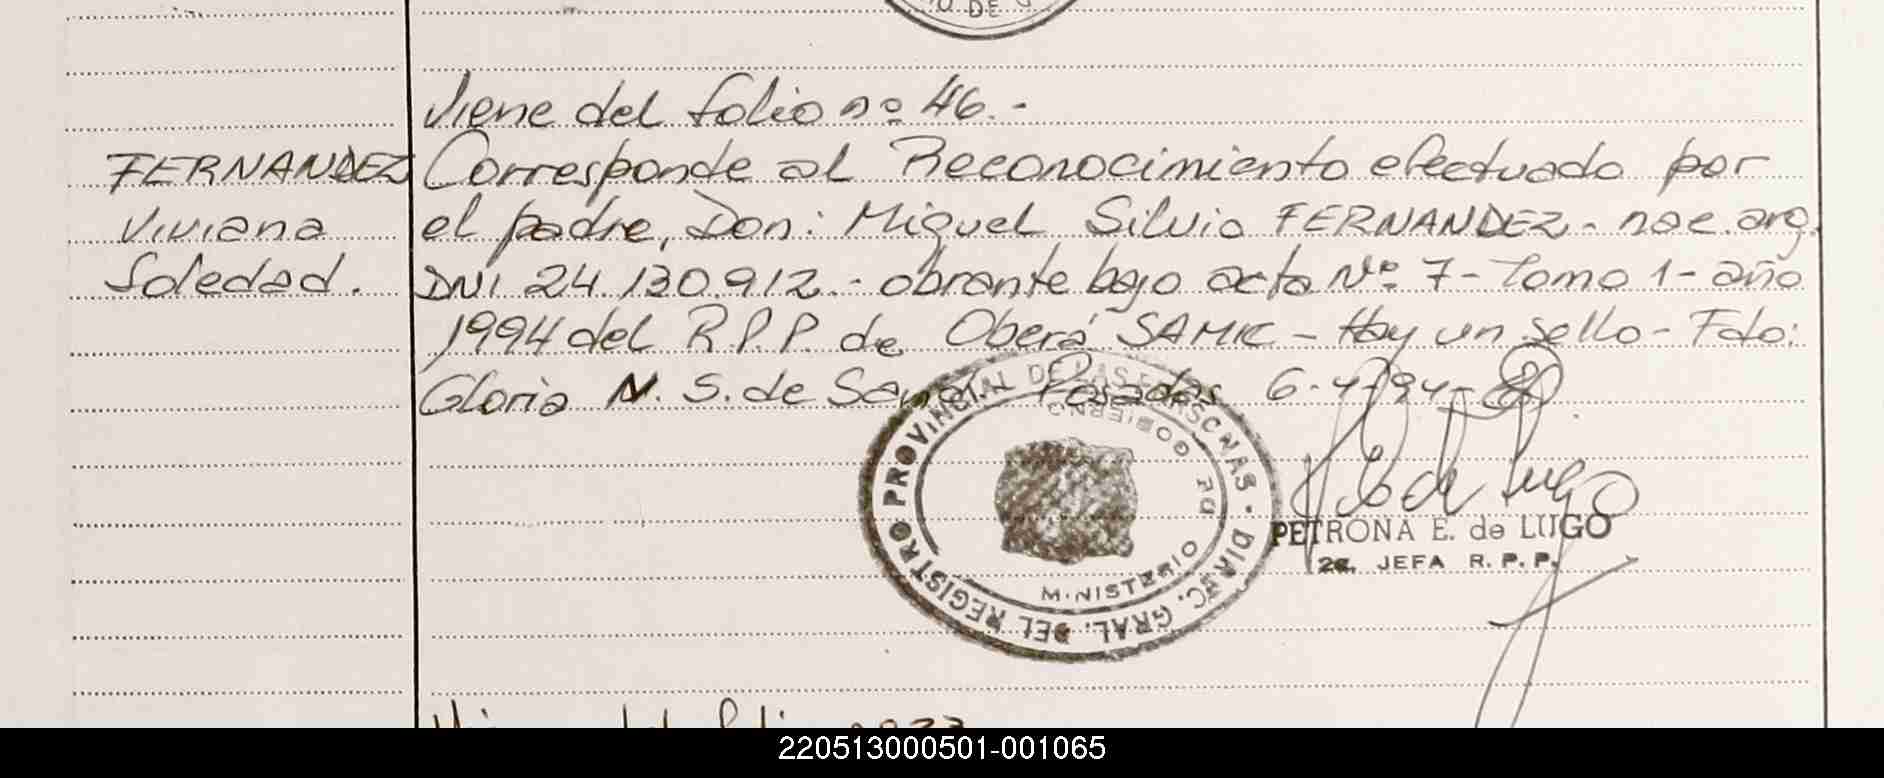 Viene del folio nº 46.-
FERNANDEZ Corresponde al Reconocimiento efectuado por
Viviana el padre, Don: Miguel Silvio FERNANDEZ - nac. arg.
Soledad. DNI 24.130.912.- obrante bajo acta Nº 7 - Tomo 1 - año
1994 del R.P.P. de Oberá SAMIC - Hay un sello - Fdo:
Gloria N. S. de Posadas 6-4-94-
REGISTRO PROVINCIAL DE LAS PERSONAS · DIREC. GRAL. DEL
GOBIERNO
MINISTERIO DE
PETRONA E. de LUGO
2a. JEFA R. P. P.
220513000501-001065